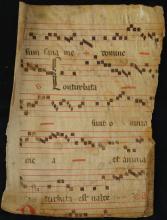 sum sana me domine
Conturbata
sunt omnia
me a et anima
turbata est valde